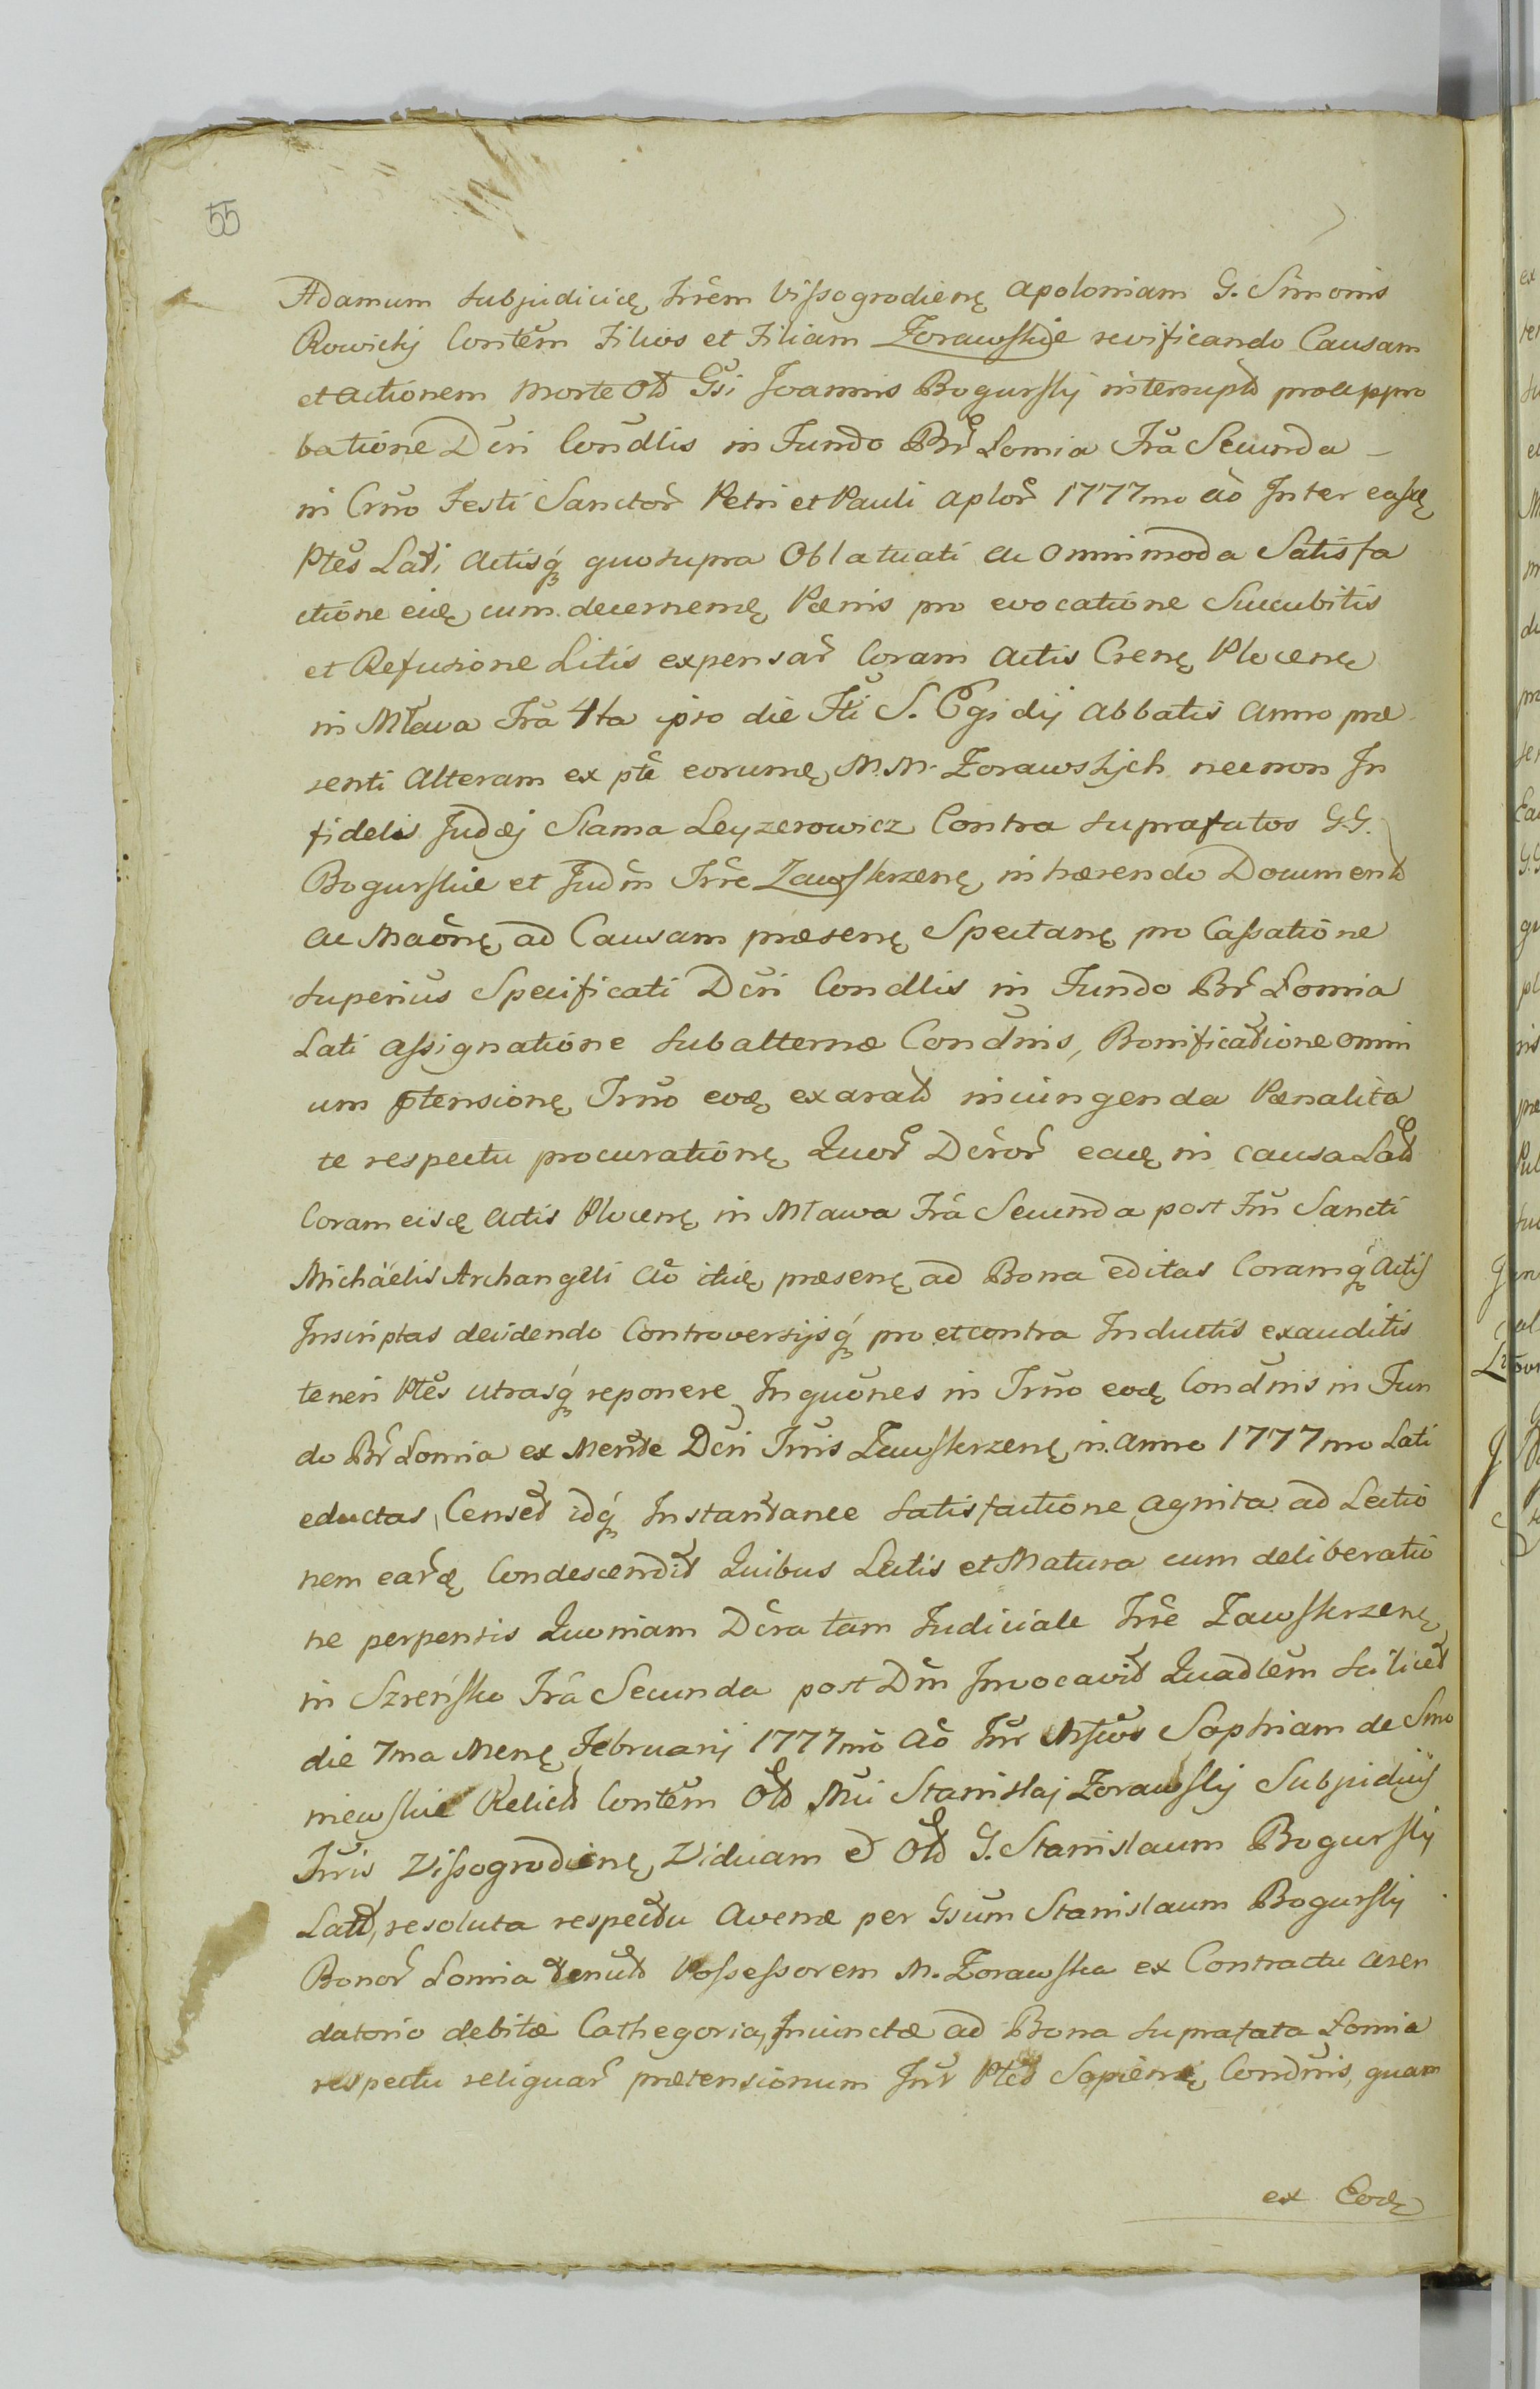 55
Adamum Subjudicię Trrem Vissogrodienę Apoloniam G. Simonis
Rowickij Contem Filios et Filiam Zorawskie revificando Causam
et actionem morte Old Gsi Joannis Bogurskij interrupt pro appro
batione Dcri Condlis in Fundo Br Łomia Fra Secunda
in Crno Festi Sanctor Petri et Pauli aplor 1777mo ao Inter easdę
Ptes Lati Actisq quo supra Oblatuati ac omnimoda Satisfa
ctione eidę cum decernenę Pœnis pro evocatione Succubitis
et Refusione Litis expensar Coram Actis Crenę Plocenę
in Mława Fra 4ta ipso die Fti S. Egidij Abbatis Anno præ
senti Alteram ex pte eorumdę M.M. Zorawskich necnon In
fidelis Judæj Slama Leyzerowicz Contra suprafatos G.G.
Bogurskie et Judm Trre Zawskrzenę inhærendo Document
ac Maonę ad Causam præsenę Spectanę pro Cassatione
superius Specificati Dcri Condlis in Fundo Br Łomia
Lati assignatione subalternæ Condnis, Bonificatione omni
um ptensionę Trno eodę exarat iniungenda Pœnalita
te respectu procurationę Quor Dcror eadę in causa Lat
Coram eisdę Actis Plocenę in Mława Fra Secunda post Fm Sancti
Michäelis Archangeli Ao itidę præsenę ad Bona editas Coramq Actis
Inscriptas decidendo Controversijsq pro et contra Inductis exauditis
teneri Ptes utrasq reponere Inquones in Trno eodę Condnis in Fun
do Br Łomia ex Mente Dcri Trris Zawskrzenę in Anno 1777mo Lati
eductas, Censet idq Instantanee satisfactione agnita ad Lectio
nem eardę Condescendit Quibus Lectis et Matura cum deliberatio
ne perpensis Quoniam Dcra tam Judiciale Trre Zawskrzenę
in Szreńsko Fra Secunda post Dm Invocavit Quadlem scilicet
die 7ma Menę Februarij 1777mo Ao Intr Mscos Sophiam de Smo
niewskie Relict Contem Old Mci Stanislaj Zorawskij Subjudicis
Trris Vissogrodienę Viduam et Old G. Stanislaum Bogurskij
Latt, resoluta respectu Avenæ per Gsum Stanislaum Bogurskij
Bonor Łomia tenut Possessorem M. Zorawska ex Contractu Aren
datorio debitæ Cathegoria, Iniunctæ ad Bona suprafata Łomia
respectu reliquar prætensionum Intr Ptes Sapienę Condnis, quam
ex Eodę